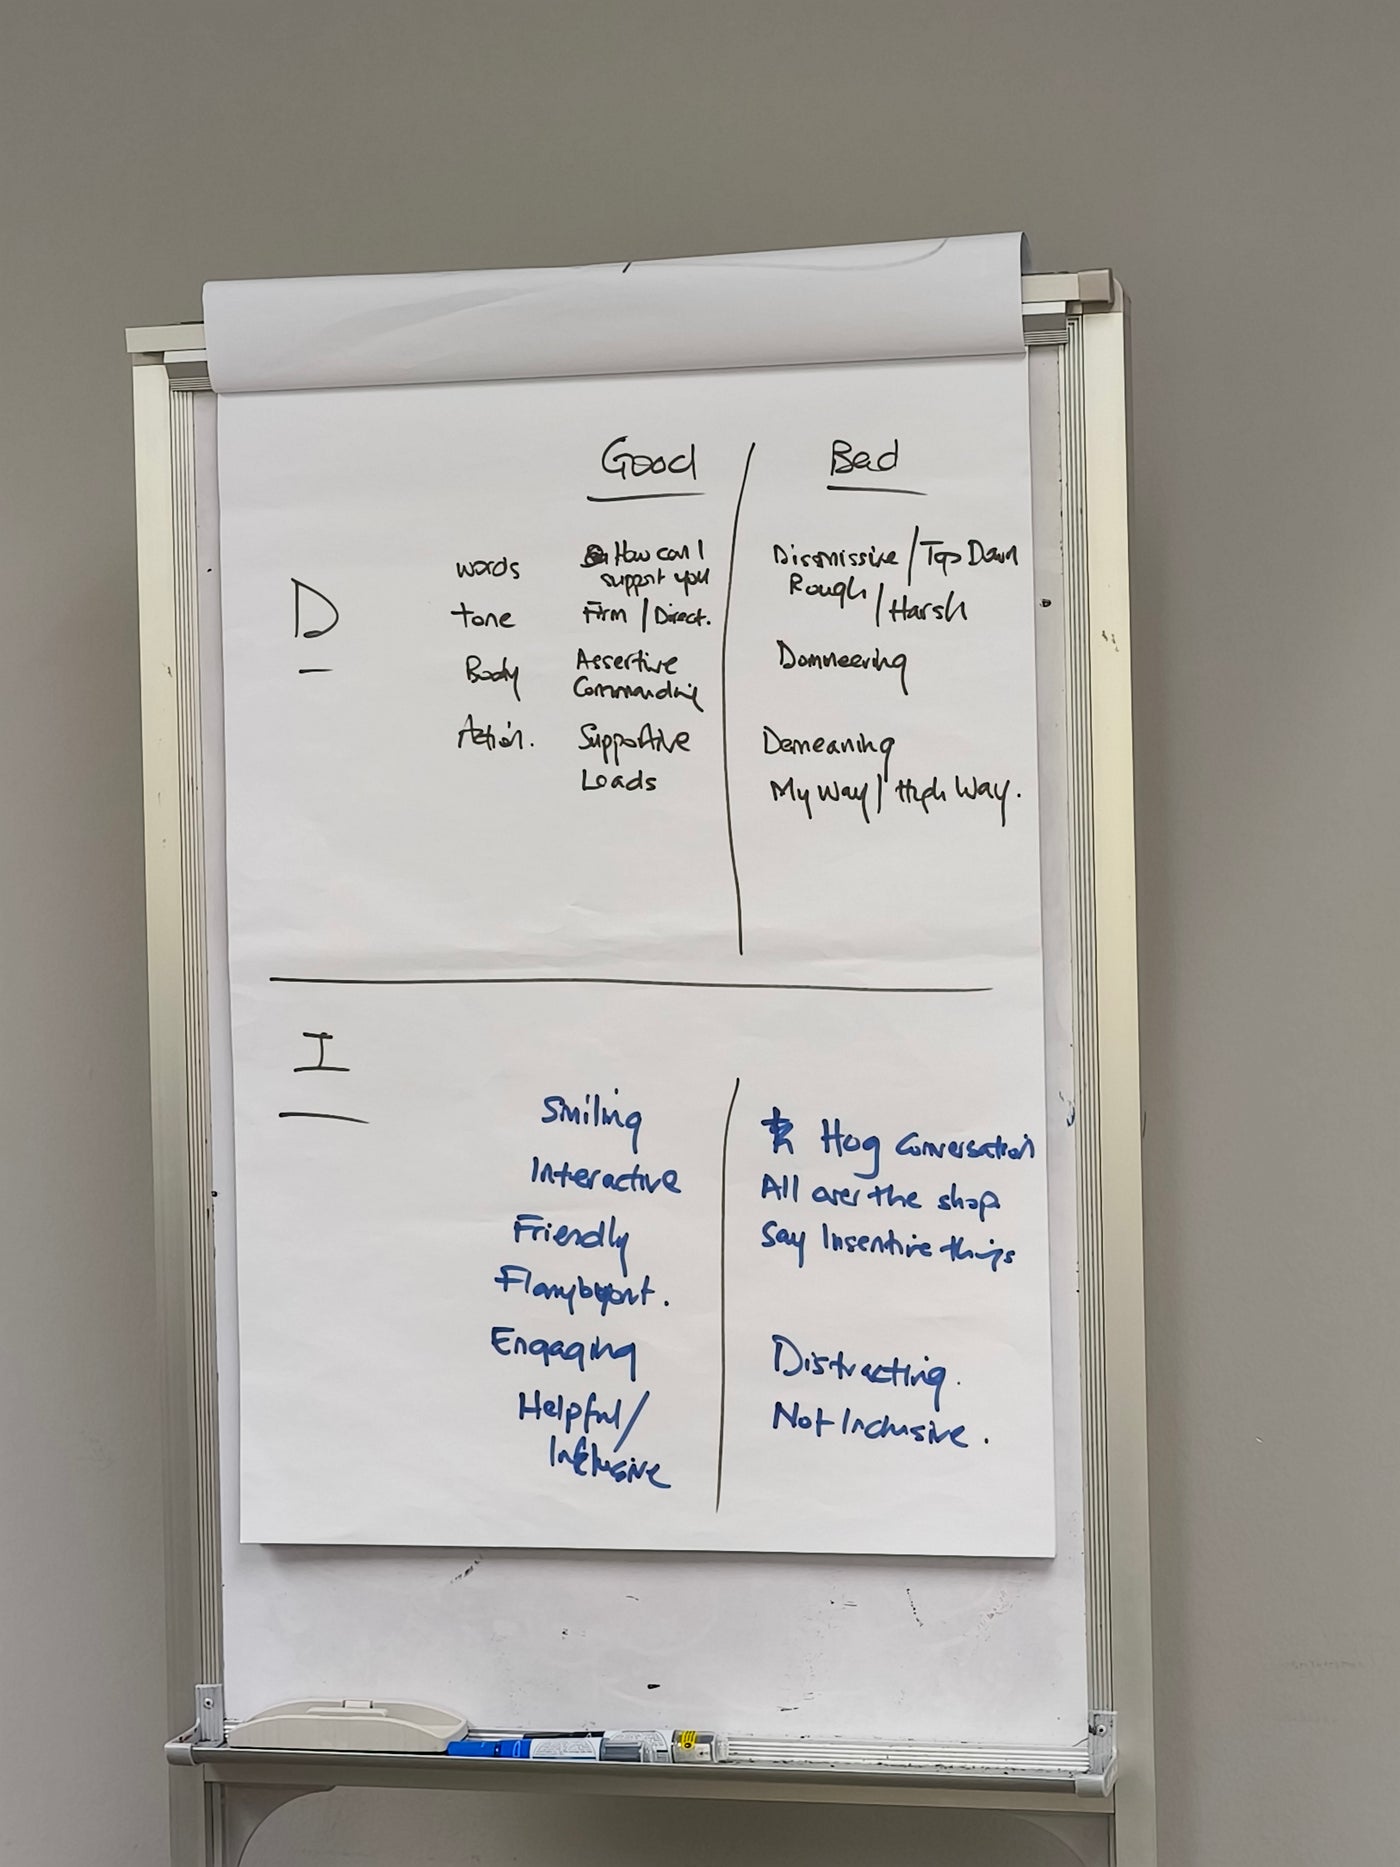 Good Bad
D
words How can I support you Dissmissive / Top Down
tone Firm / Direct. Rough / Harsh
Body Assertive Commanding Domneering
Action. Supportive Demeaning
Leads My Way / High Way.
I
Smiling Hog Conversation
Interactive All over the shop
Friendly Say Insentive things
Engaging Distracting.
Helpful / Not Inclusive.
Inclusive